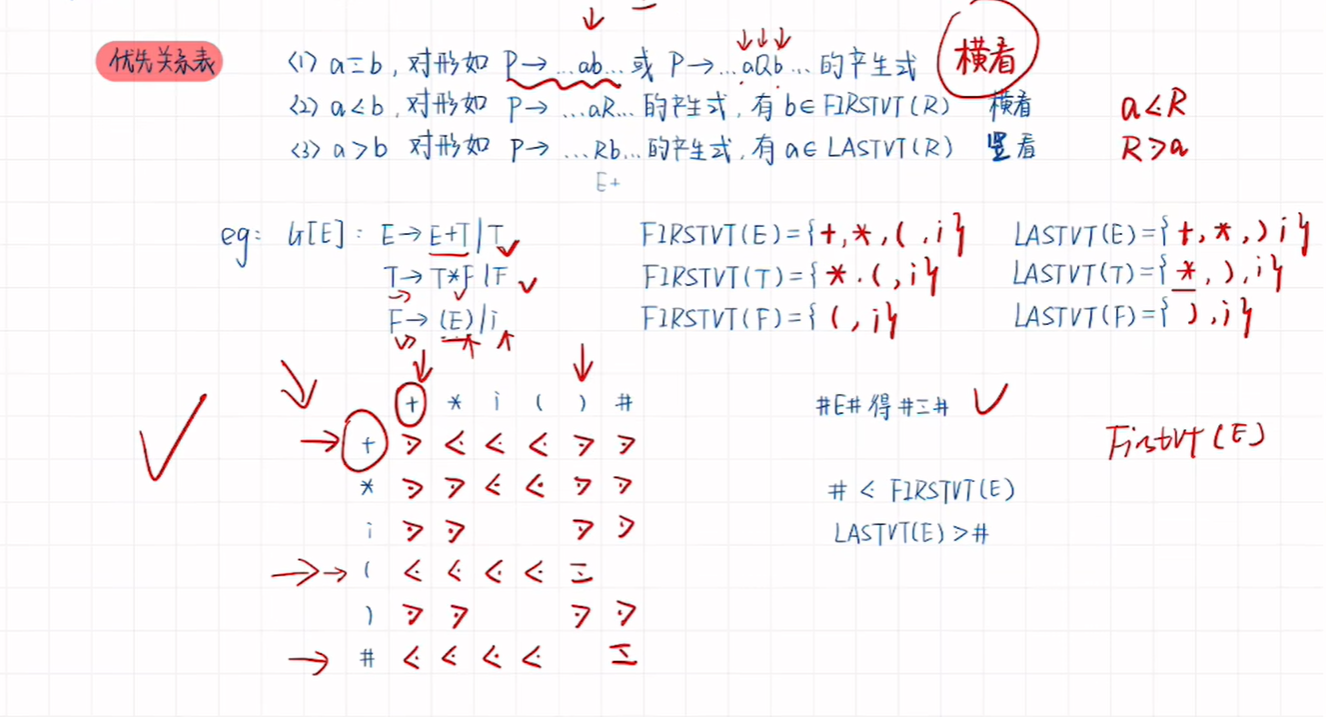 优先关系表 <1> a=b, 对形如 P→ …ab… 或 P→ …aQb… 的产生式 横看
<2> a<b, 对形如 P→ …aR… 的产生式, 有 b∈FIRSTVT(R) 横看 a⋖R
<3> a>b 对形如 P→ …Rb… 的产生式, 有 a∈LASTVT(R) 竖看 R⋗a
E+
eg: G[E]: E→E+T|T FIRSTVT(E)={+,*,(,i} LASTVT(E)={+,*,)i}
T→T*F|F FIRSTVT(T)={*.(,i} LASTVT(T)={*,),i}
F→(E)|i FIRSTVT(F)={(,i} LASTVT(F)={),i}
+ * i ( ) # #E#得#≐#
+ ⋗ ⋖ ⋖ ⋖ ⋗ ⋗ FirstVT(E)
* ⋗ ⋗ ⋖ ⋖ ⋗ ⋗ # < FIRSTVT(E)
i ⋗ ⋗ ⋗ ⋗ LASTVT(E)>#
( ⋖ ⋖ ⋖ ⋖ ≐
) ⋗ ⋗ ⋗ ⋗
# ⋖ ⋖ ⋖ ⋖ ≐